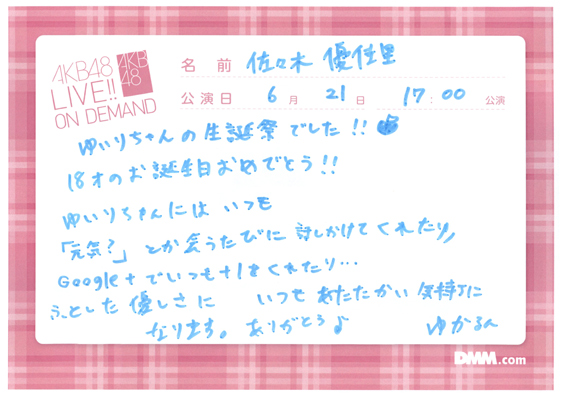 AKB48
LIVE!!
ON DEMAND
AKB
48
名前 佐々木 優佳里
公演日 6月 21日 17:00 公演
ゆいりちゃんの生誕祭でした!!
18才のお誕生日おめでとう!!
ゆいりちゃんには いつも
「元気?」とか会うたびに 話しかけてくれたり
Google+でいつも+1をくれたり…
ふとした優しさに いつも あたたかい気持ちに
なります。ありがとう♪ ゆかるん
DMM.com